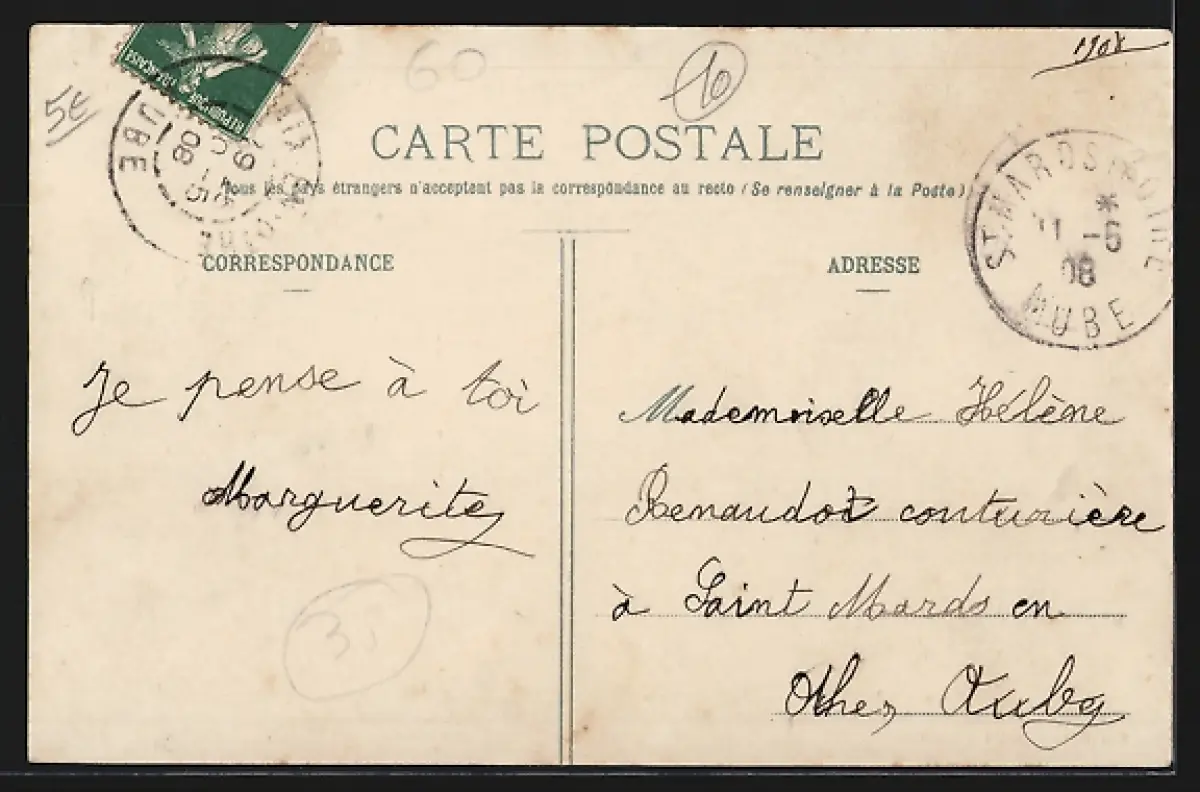 1908
60
10
5€
REPUBLIQUE FRANÇAISE
CARTE POSTALE
Tous les pays étrangers n'acceptent pas la correspondance au recto (Se renseigner à la Poste)
AUBE
08
ST MARDS
11 -5
08
AUBE
CORRESPONDANCE
ADRESSE
Je pense à toi
Marguerite
30
Mademoiselle Hélène
Renaudot couturière
à Saint Mards en
Othes Aube